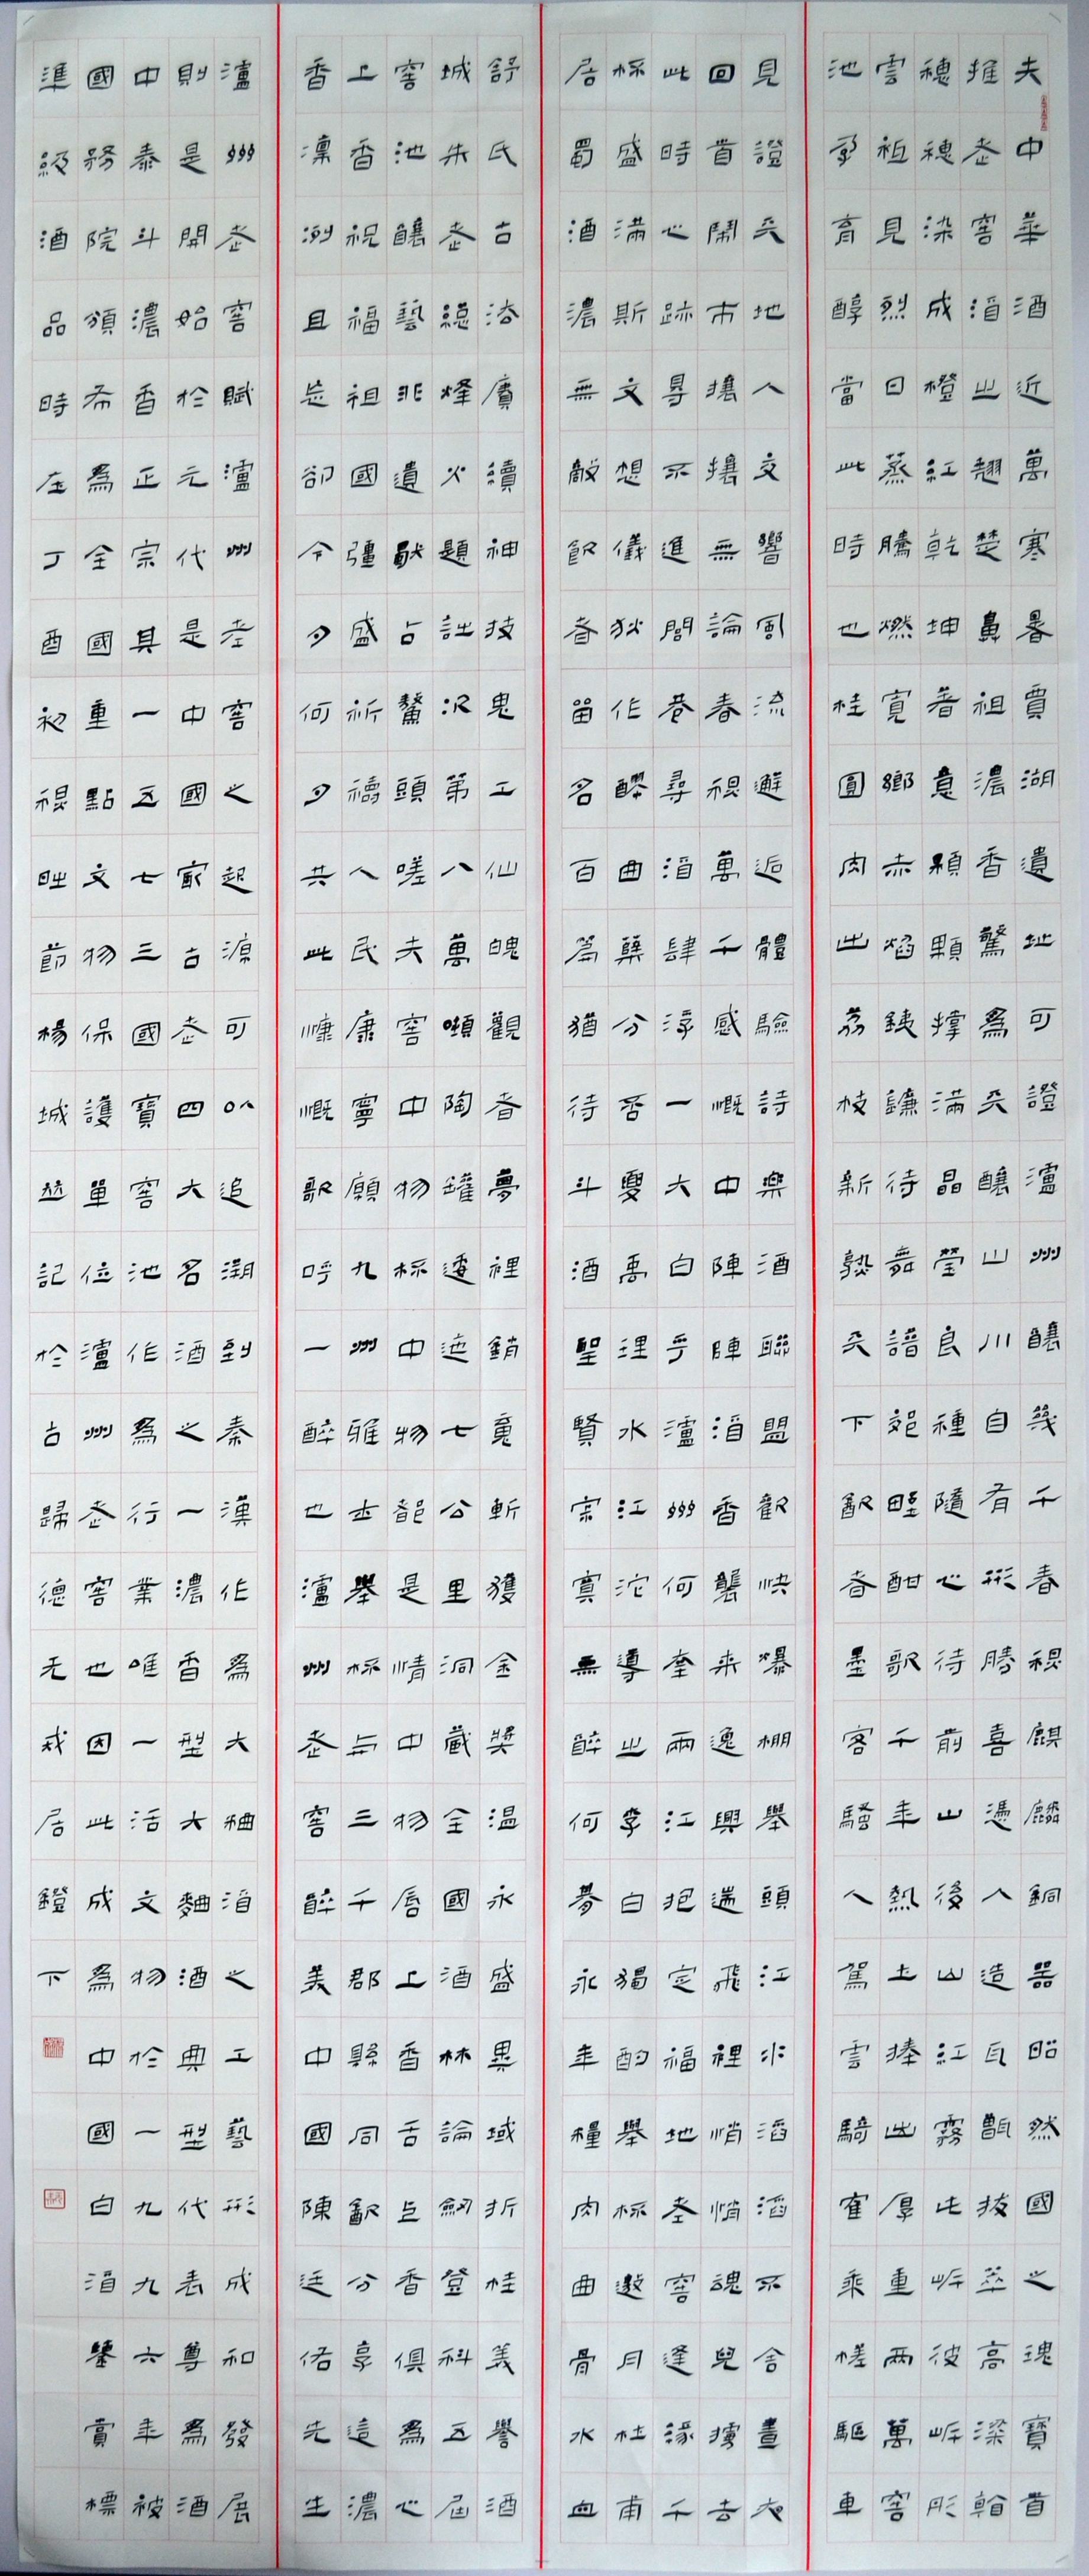 夫中華酒近萬寒暑賈湖遺址可證瀘州釀幾千春視麒麟銅器昭然國之瑰寶首
推老窖酒之翹楚鼻祖濃香驚為天釀山川自有形勝喜憑人造瓦甑拔萃高深翰
穗穗染成橙紅乾坤著意顆顆撐滿晶瑩良種隨心待前山後山紅霧此岸彼岸彤
雲祖見烈日蒸騰燃寬鄉赤焰銕鐮待舞譜起野酣歌千年熱土捧出厚重兩萬窖
池孕育醇當此時也桂圓肉出荔枝新熟天下飲者墨客騷人駕雲騎隺乘槎驅車
見證天地人文響風流邂逅體驗詩樂酒聯盟歡快爆棚舉頭江水滔滔不舍晝夜
回首鬧市攘攘無論春視萬千感慨中陣陣酒香襲來逸興遄飛裡悄悄魂兒擄去
此時心跡尋不進閭巷尋酒肆浮一大白乎瀘州何幸兩江抱定福地老窖逢緣千
杯盛滿斯文想儀狄作醪曲糵分否夏禹理水江沱導出李白獨酌舉杯邀月杜甫
居蜀酒濃無敵飲者留名百篇猶待斗酒聖賢寂寞無醉何夢永年糧肉曲骨水血
舒氏古法賡續神技鬼工仙魄觀者夢裡銷魂斬獲金獎溫永盛異域折桂美譽酒
城朱老總烽火題詠況第八萬噸陶罐逶迤七公里洞藏全國酒林論劍登科五屆
窖池釀藝非遺猷占鰲頭嗟夫窖中物杯中物都是情中物唇上香舌上香俱為心
上香祝福祖國彊盛祈禱人民康寧願九州雅士舉杯與三千郡縣同飲分享這濃
香凜冽且長卻今夕何夕共此慷慨歌呼一醉也瀘州老窖醉美中國陳廷佑先生
瀘州老窖賦瀘州老窖之起源可以追溯到秦漢作為大麯酒之工藝形成和發展
則是開始於元代是中國最古老四大名酒之一濃香型大麯酒典型代表尊為酒
中泰斗濃香正宗其一五七三國寶窖池作為行業唯一活文物於一九九六年被
國務院頒布為全國重點文物保護單位瀘州老窖也因此成為中國白酒鑒賞標
準級酒品時在丁酉初視旺節楊城並記於古歸德无戒居鐙下